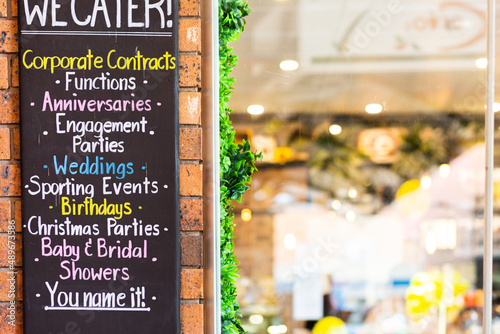 WE CATER!
Corporate Contracts
· Functions ·
· Anniversaries ·
Engagement
Parties
· Weddings ·
· Sporting Events ·
· Birthdays ·
· Christmas Parties ·
Baby & Bridal
Showers
· You name it! ·
Adobe Stock | #489673586